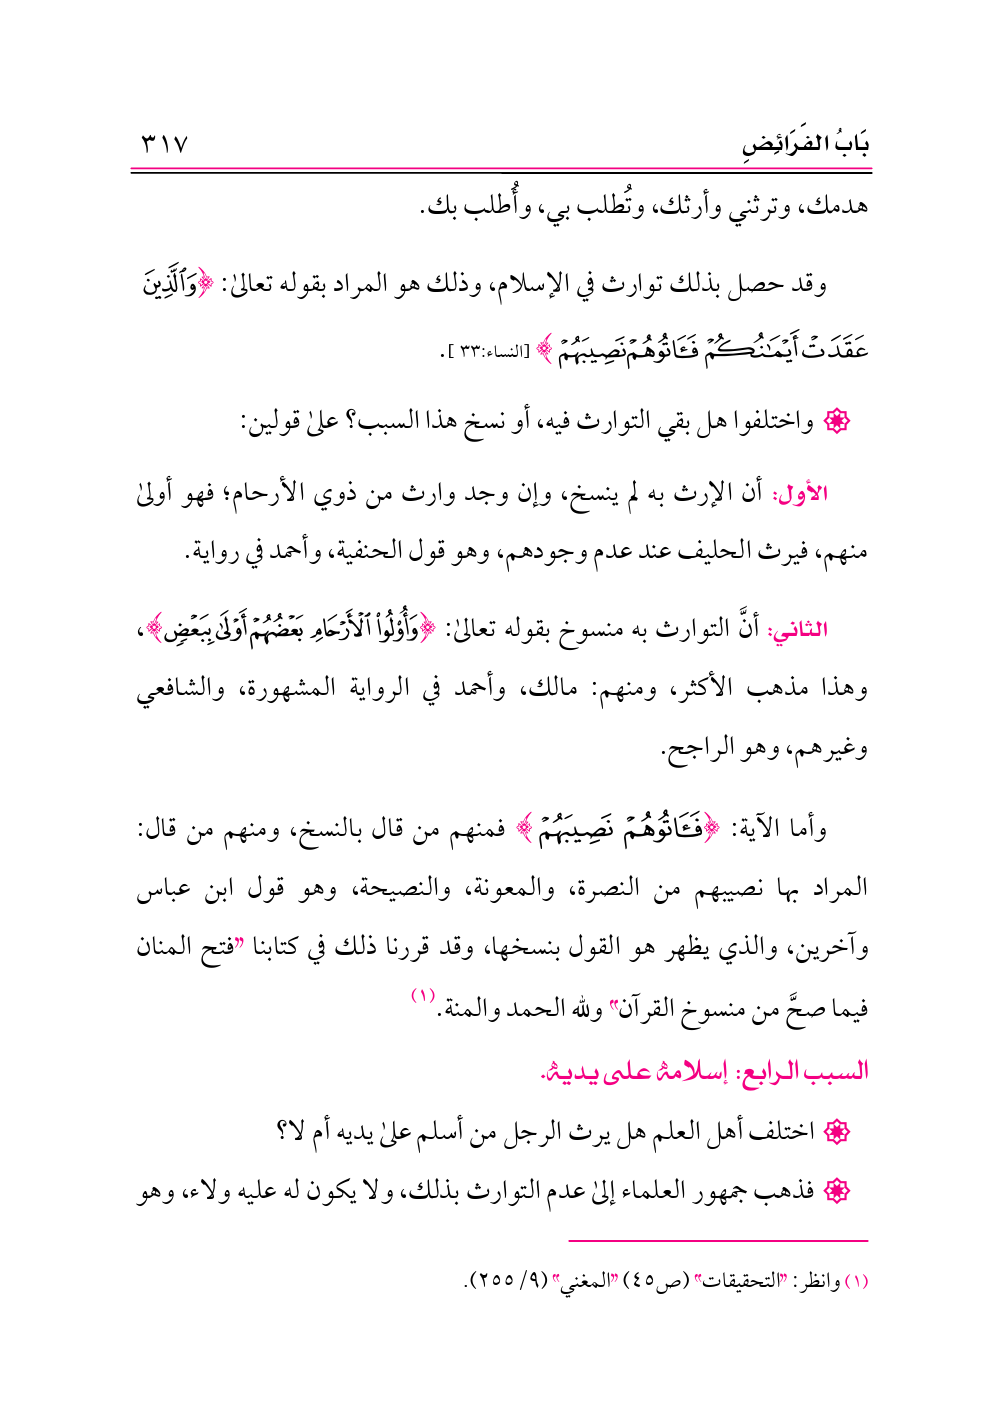 بَابُ الفَرَائِضِ ٣١٧
هدمك، وترثني وأرثك، وتُطلب بي، وأُطلب بك.
وقد حصل بذلك توارث في الإسلام، وذلك هو المراد بقوله تعالىٰ: ﴿وَٱلَّذِينَ
عَقَدَتۡ أَيۡمَٰنُكُمۡ فَـَٔاتُوهُمۡ نَصِيبَهُمۡ﴾ [النساء:٣٣].
واختلفوا هل بقي التوارث فيه، أو نسخ هذا السبب؟ علىٰ قولين:
الأول: أن الإرث به لم ينسخ، وإن وجد وارث من ذوي الأرحام؛ فهو أولىٰ
منهم، فيرث الحليف عند عدم وجودهم، وهو قول الحنفية، وأحمد في رواية.
الثاني: أنَّ التوارث به منسوخ بقوله تعالىٰ: ﴿وَأُوْلُواْ ٱلۡأَرۡحَامِ بَعۡضُهُمۡ أَوۡلَىٰ بِبَعۡضٖ﴾،
وهذا مذهب الأكثر، ومنهم: مالك، وأحمد في الرواية المشهورة، والشافعي
وغيرهم، وهو الراجح.
وأما الآية: ﴿فَـَٔاتُوهُمۡ نَصِيبَهُمۡ﴾ فمنهم من قال بالنسخ، ومنهم من قال:
المراد بها نصيبهم من النصرة، والمعونة، والنصيحة، وهو قول ابن عباس
وآخرين، والذي يظهر هو القول بنسخها، وقد قررنا ذلك في كتابنا "فتح المنان
فيما صحَّ من منسوخ القرآن" ولله الحمد والمنة.(١)
السبب الرابع: إسلامهُ على يديهُ.
اختلف أهل العلم هل يرث الرجل من أسلم علىٰ يديه أم لا؟
فذهب جمهور العلماء إلىٰ عدم التوارث بذلك، ولا يكون له عليه ولاء، وهو
(١) وانظر: "التحقيقات" (ص٤٥) "المغني" (٩/ ٢٥٥).